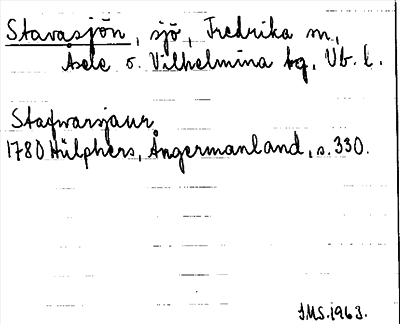 Stavasjön, sjö, Fredrika sn,
Åsele o. Vilhelmina tg, Vb. l.
Stafwarsjaur
1780 Hülphers, Ångermanland, s. 330.
JMS.1963.